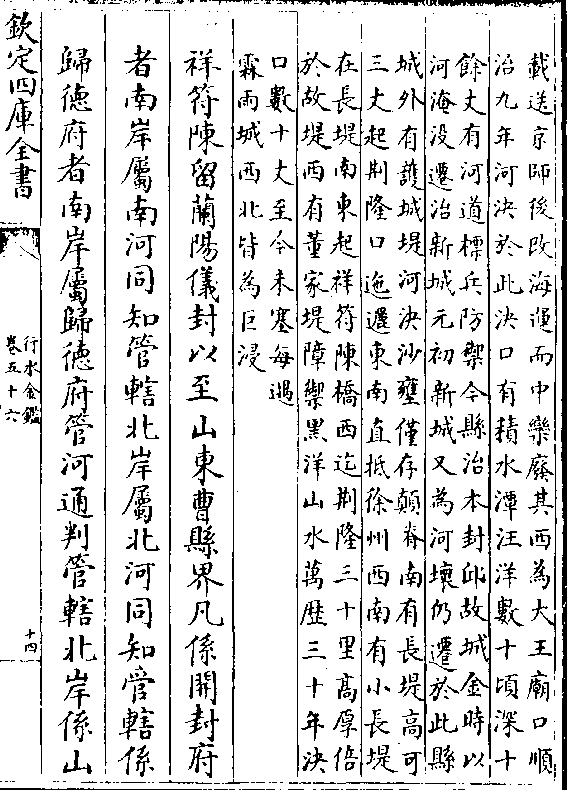 載送京師後改海運而中樂廢其西為大王廟口順
治九年河決於此決口有積水潭汪洋數十頃深十
餘丈有河道標兵防禦今縣治本封邱故城金時以
河淹没遷治新城元初新城又為河壞仍遷於此縣
城外有護城堤河決沙壅僅存顛脊南有長堤高可
三丈起荆隆口迤邐東南直抵徐州西南有小長堤
在長堤南東起祥符陳橋西迄荆隆三十里高厚倍
於故堤西有董家堤障禦黑洋山水萬歴三十年決
口數十丈至今未塞每遇
霖雨城西北皆為巨浸
祥符陳留蘭陽儀封以至山東曹縣界凡係開封府
者南岸屬南河同知管轄北岸屬北河同知管轄係
歸德府者南岸屬歸德府管河通判管轄北岸係山
欽定四庫全書
行水金鑑
卷五十六
十四